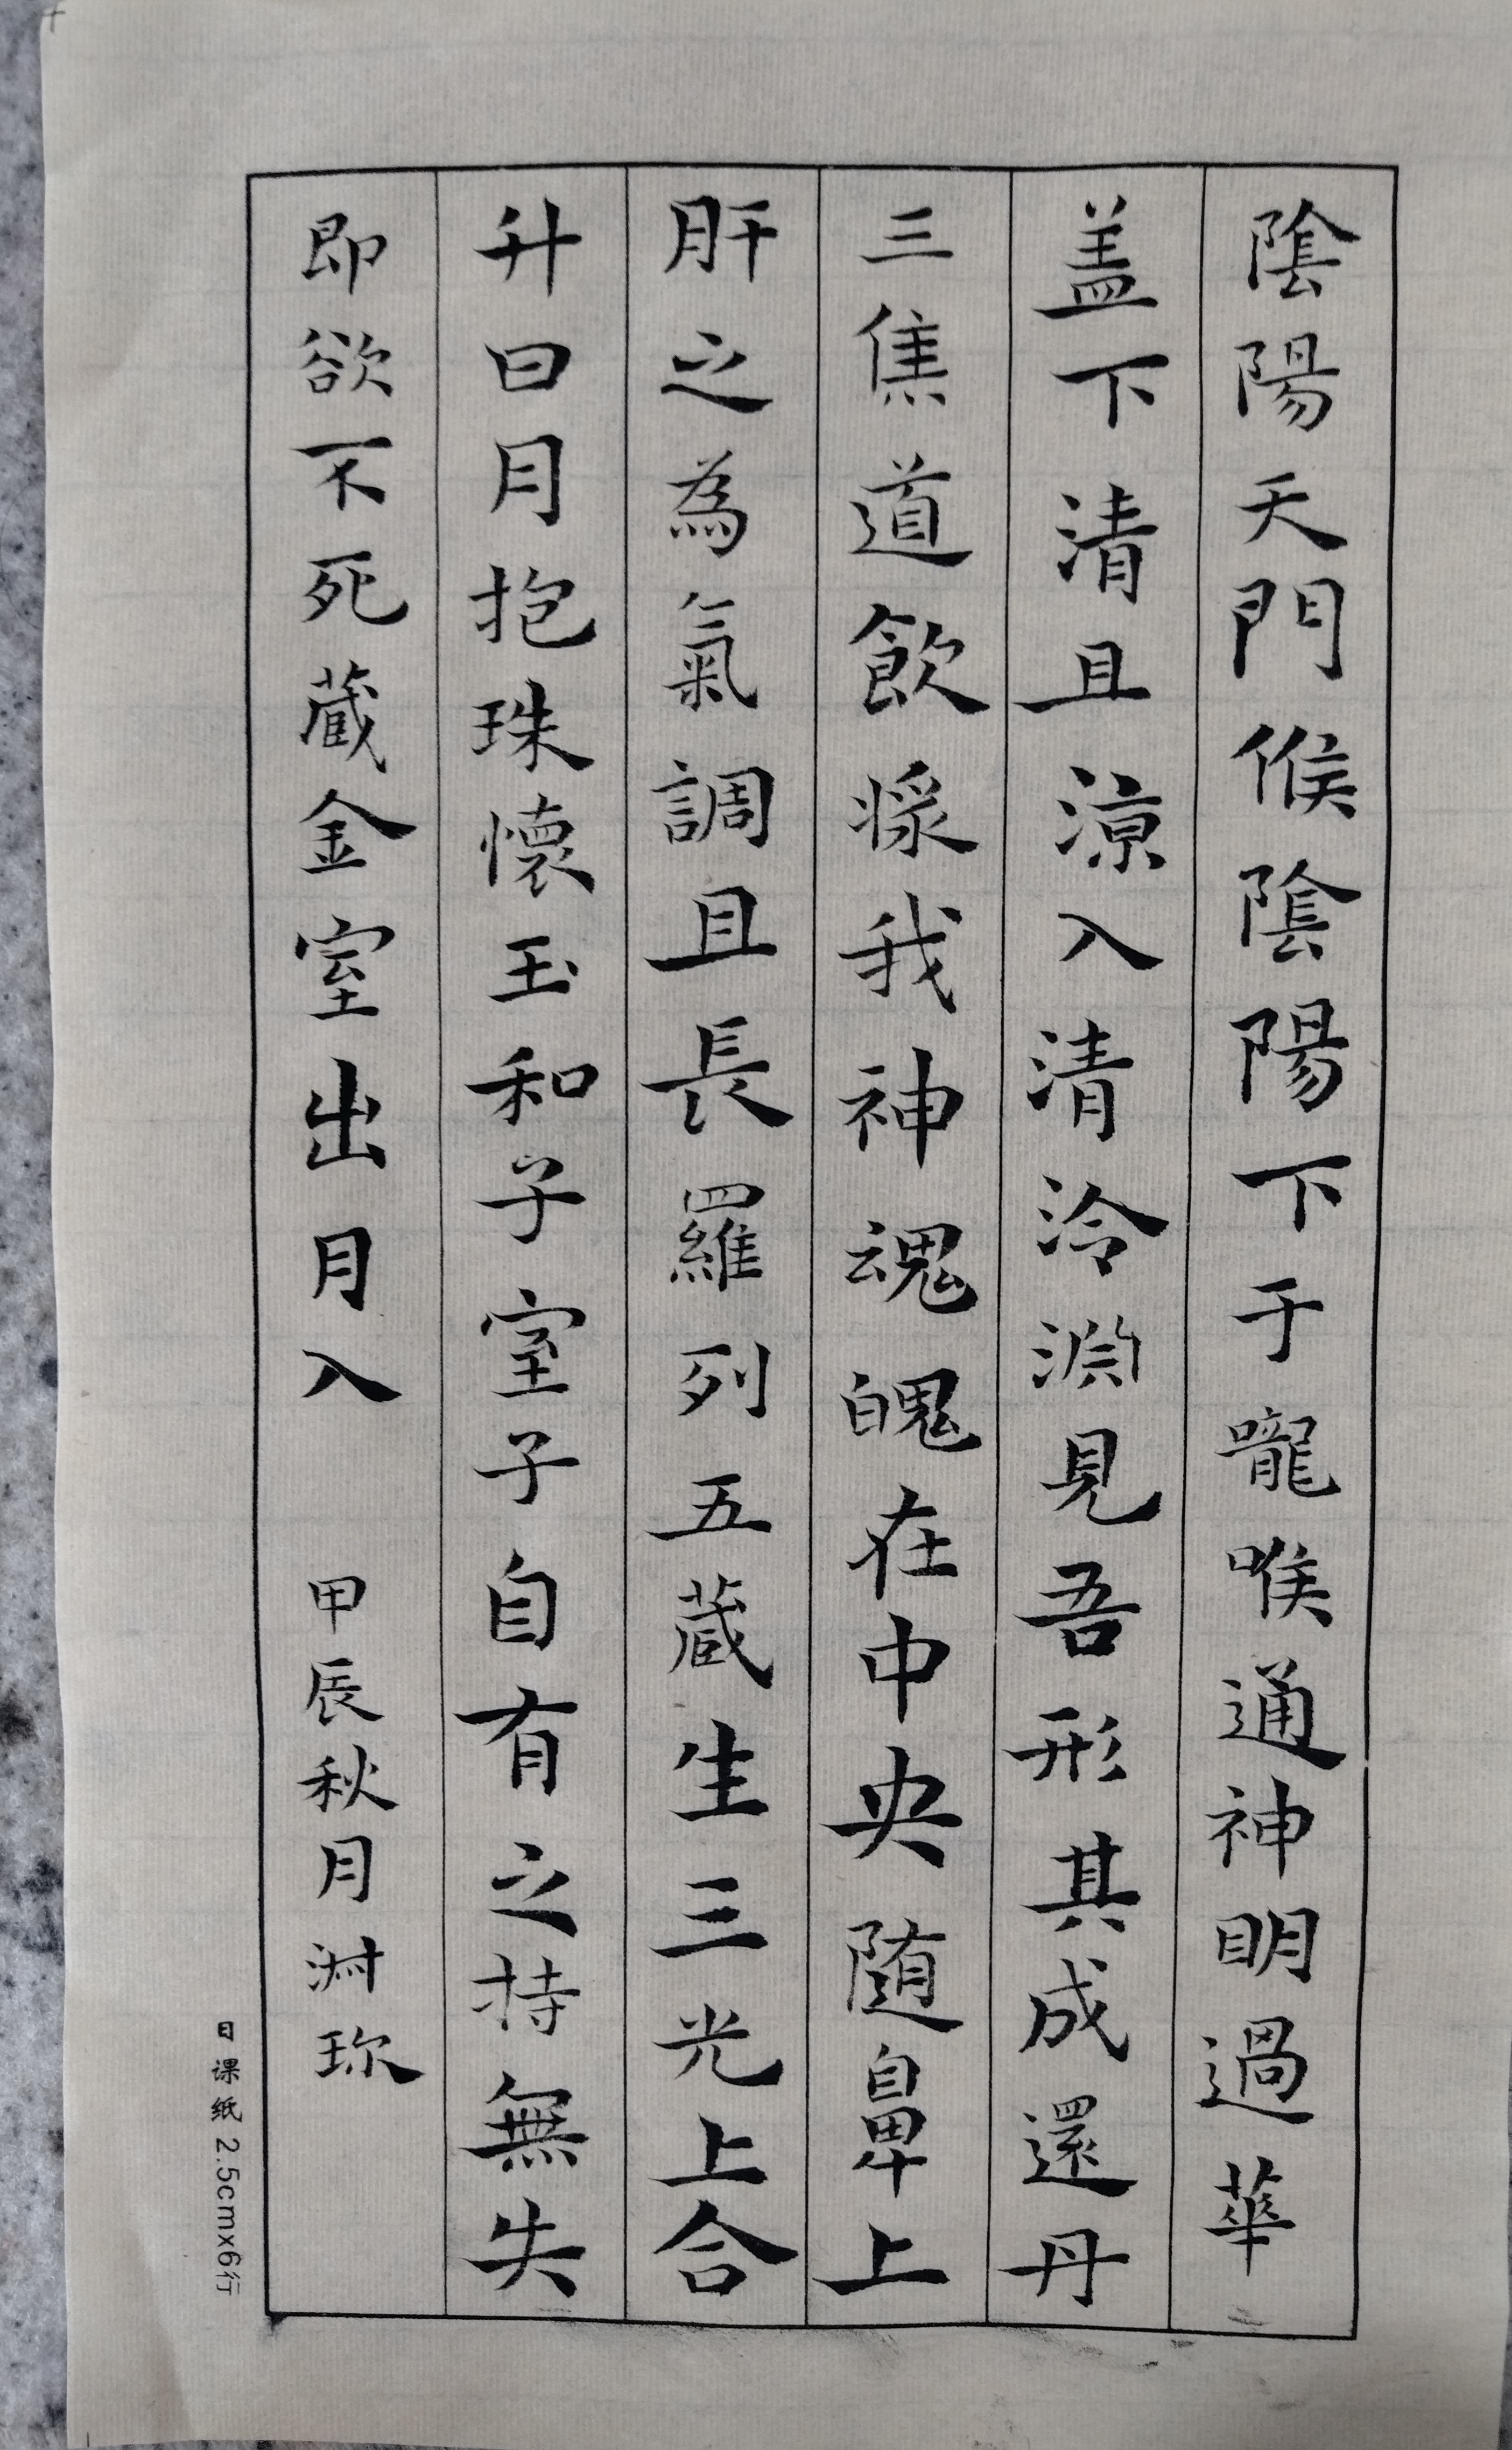 陰陽天門候陰陽下于嚨喉通神明過華
盖下清且涼入清泠淵見吾形其成還丹
三焦道飲漿我神魂魄在中央随鼻上
肝之為氣調且長羅列五蔵生三光上合
升日月抱珠懷玉和子室子自有之持無失
即欲不死蔵金室出月入
甲辰秋月淑珎
日课纸 2.5cmx6行